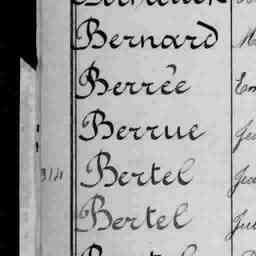 Bernard
Berrée
Berrue
314 Bertel
Bertel